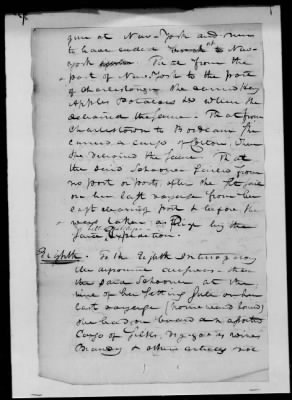 gun at New-York and was
to have ended at New-
York. That from the
port of New York to the port
of Charlestown she carried Hay
Apples Potatoes &c where she
delivered the same. That from
Charlestown to Bordeaux she
carried a cargo of Cotton, where
she delivered the same. That
the said Schooner sailed from
no port or ports after she set sail
on her last voyage from her
last clearing port & before she
was taken as Prize by the
same
Eighth. To the Eighth Interrogatory
the deponent answers - that
the said Schooner at the
time of her setting sail on her
last voyage (homeward bound)
she had on board an assorted
Cargo of Silks, wines
Brandy & other articles not